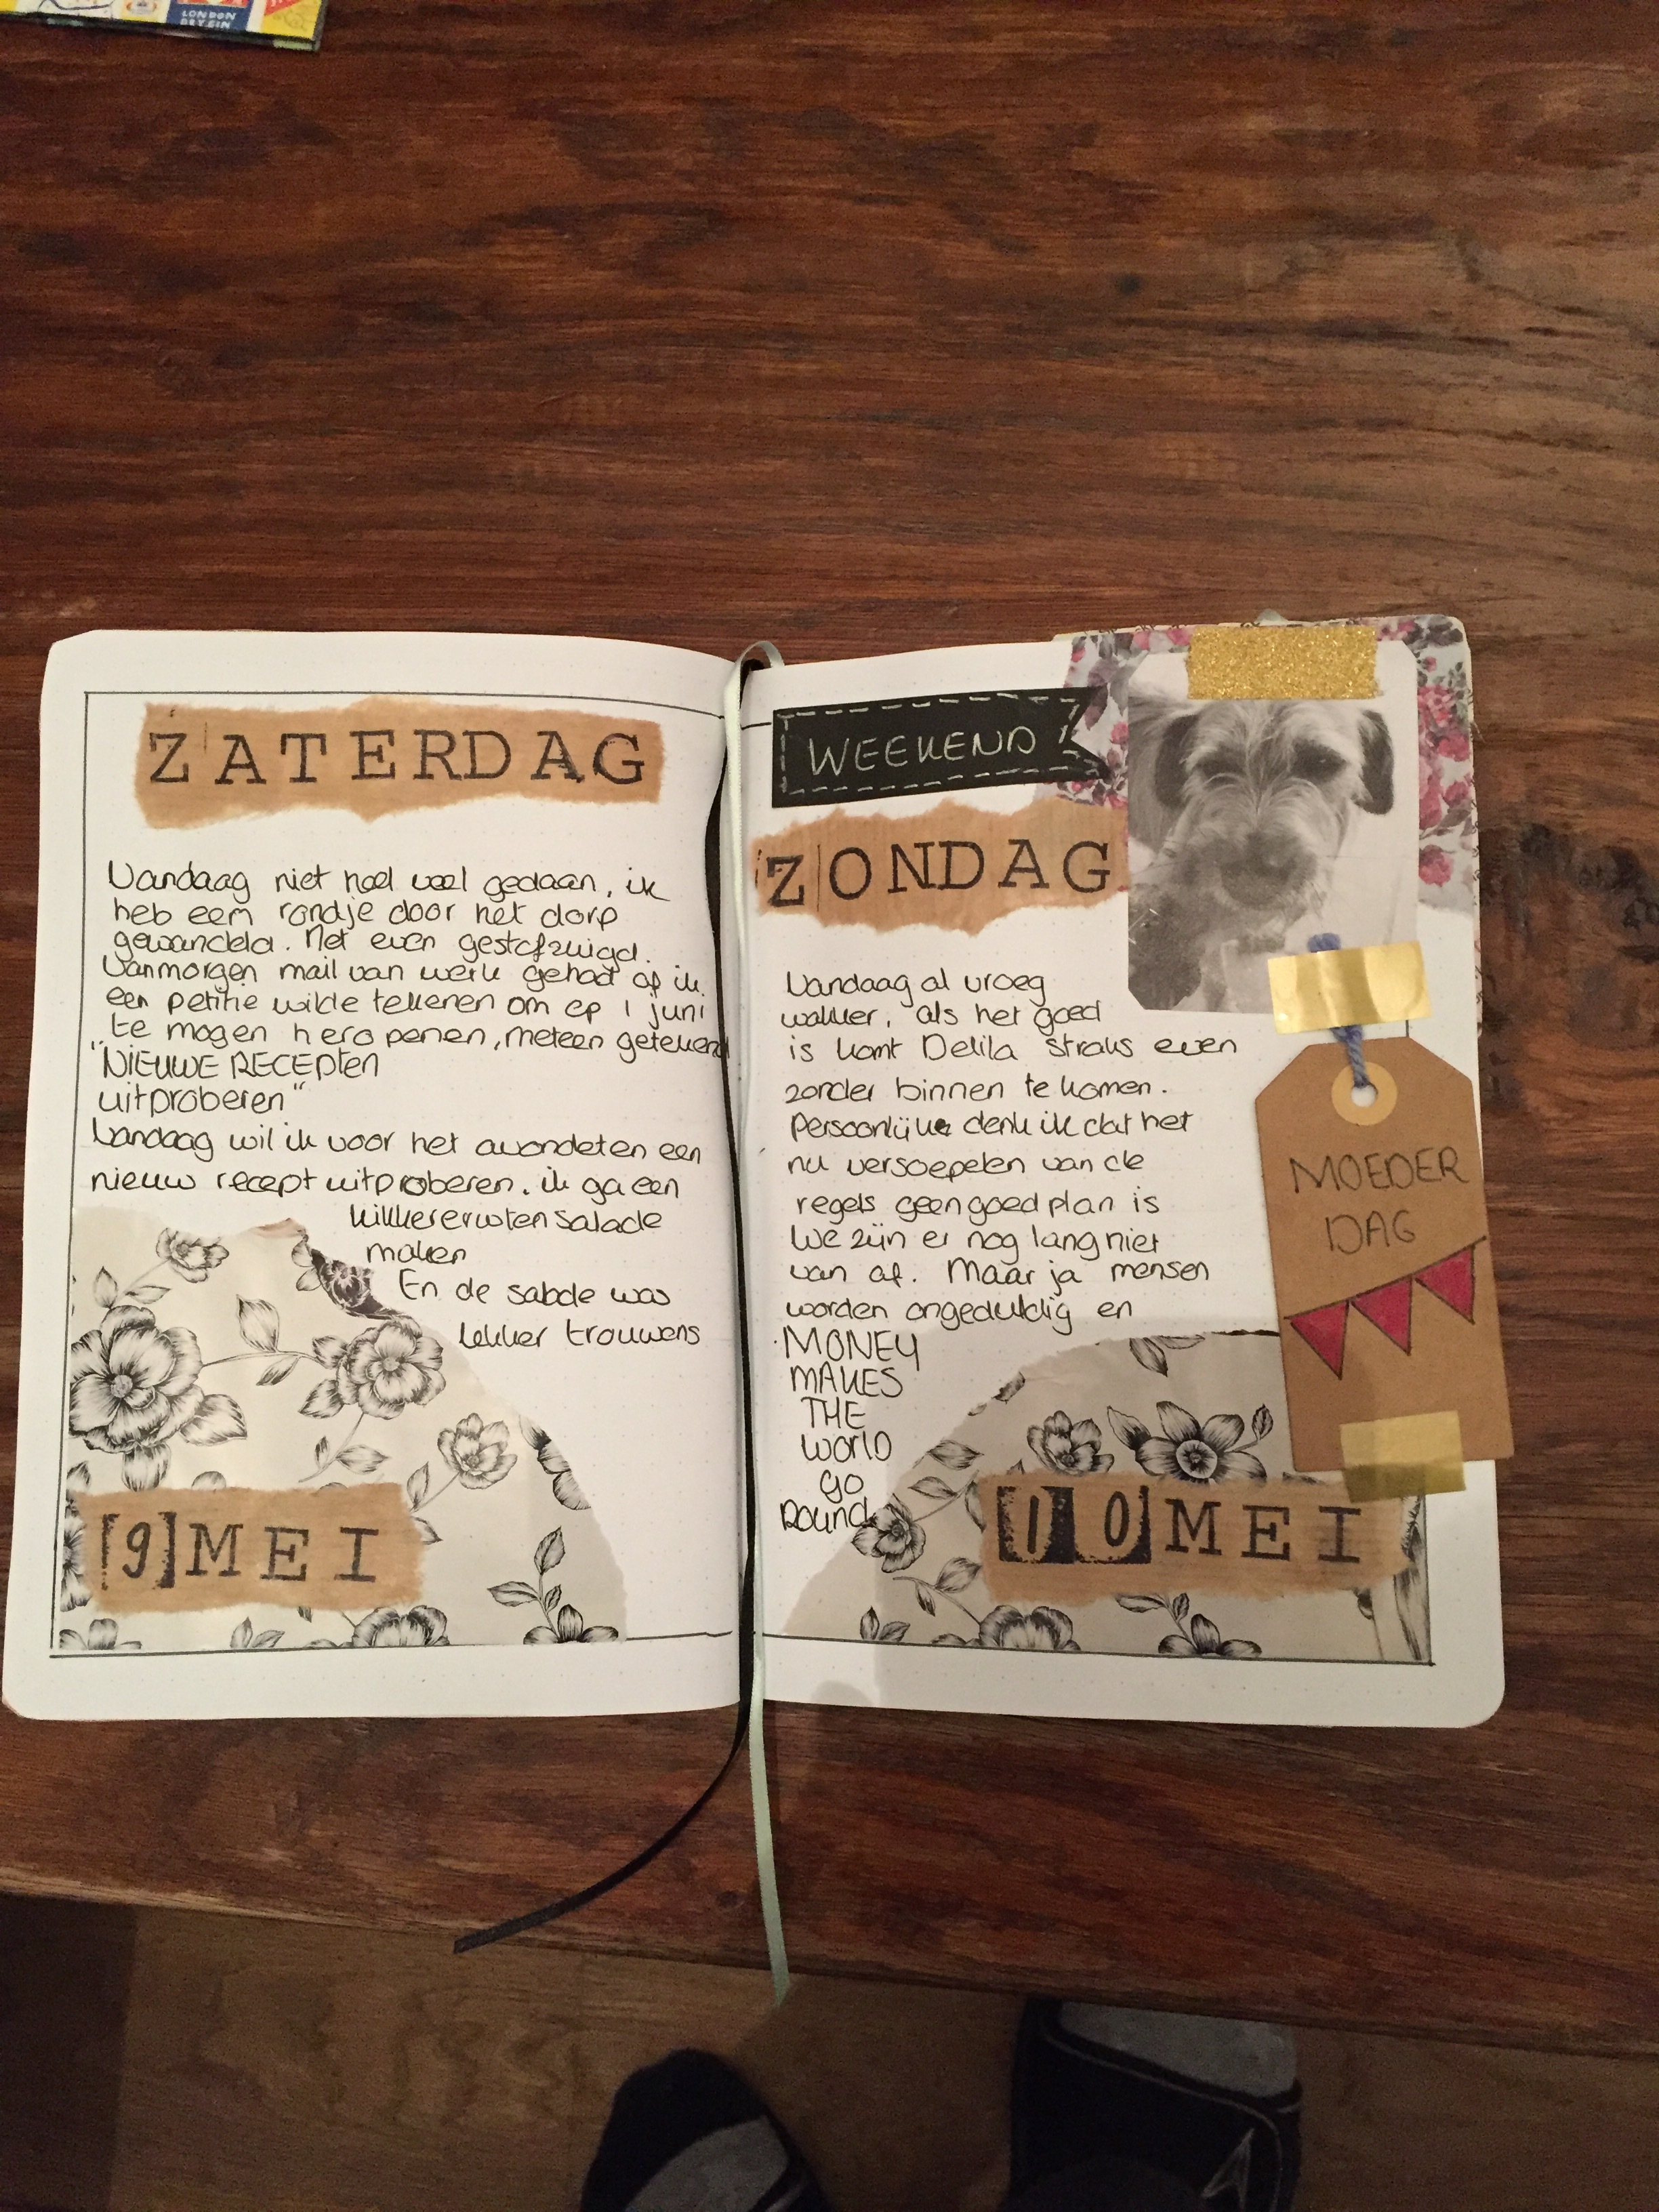 LONDON
DRY GIN
ZATERDAG
Vandaag niet heel veel gedaan, ik
heb een rondje door het dorp
gewandeld. Net even gestofzuigd.
Vanmorgen mail van werk gehad of ik
een petitie wilde tekenen om op 1 juni
te mogen heropenen, meteen getekend
"NIEUWE RECEPTEN
uitproberen"
Vandaag wil ik voor het avondeten een
nieuw recept uitproberen. ik ga een
kikkererwten salade
maken
En de salade was
lekker trouwens
9 MEI
WEEKEND
ZONDAG
Vandaag al vroeg
wakker, als het goed
is komt Delila straks even
zonder binnen te komen.
Persoonlijke denk ik dat het
nu versoepelen van de
regels geen goed plan is
We zijn er nog lang niet
van af. Maar ja mensen
worden ongeduldig en
MONEY
MAKES
THE
WORLD
GO
ROUND
MOEDER
DAG
10 MEI